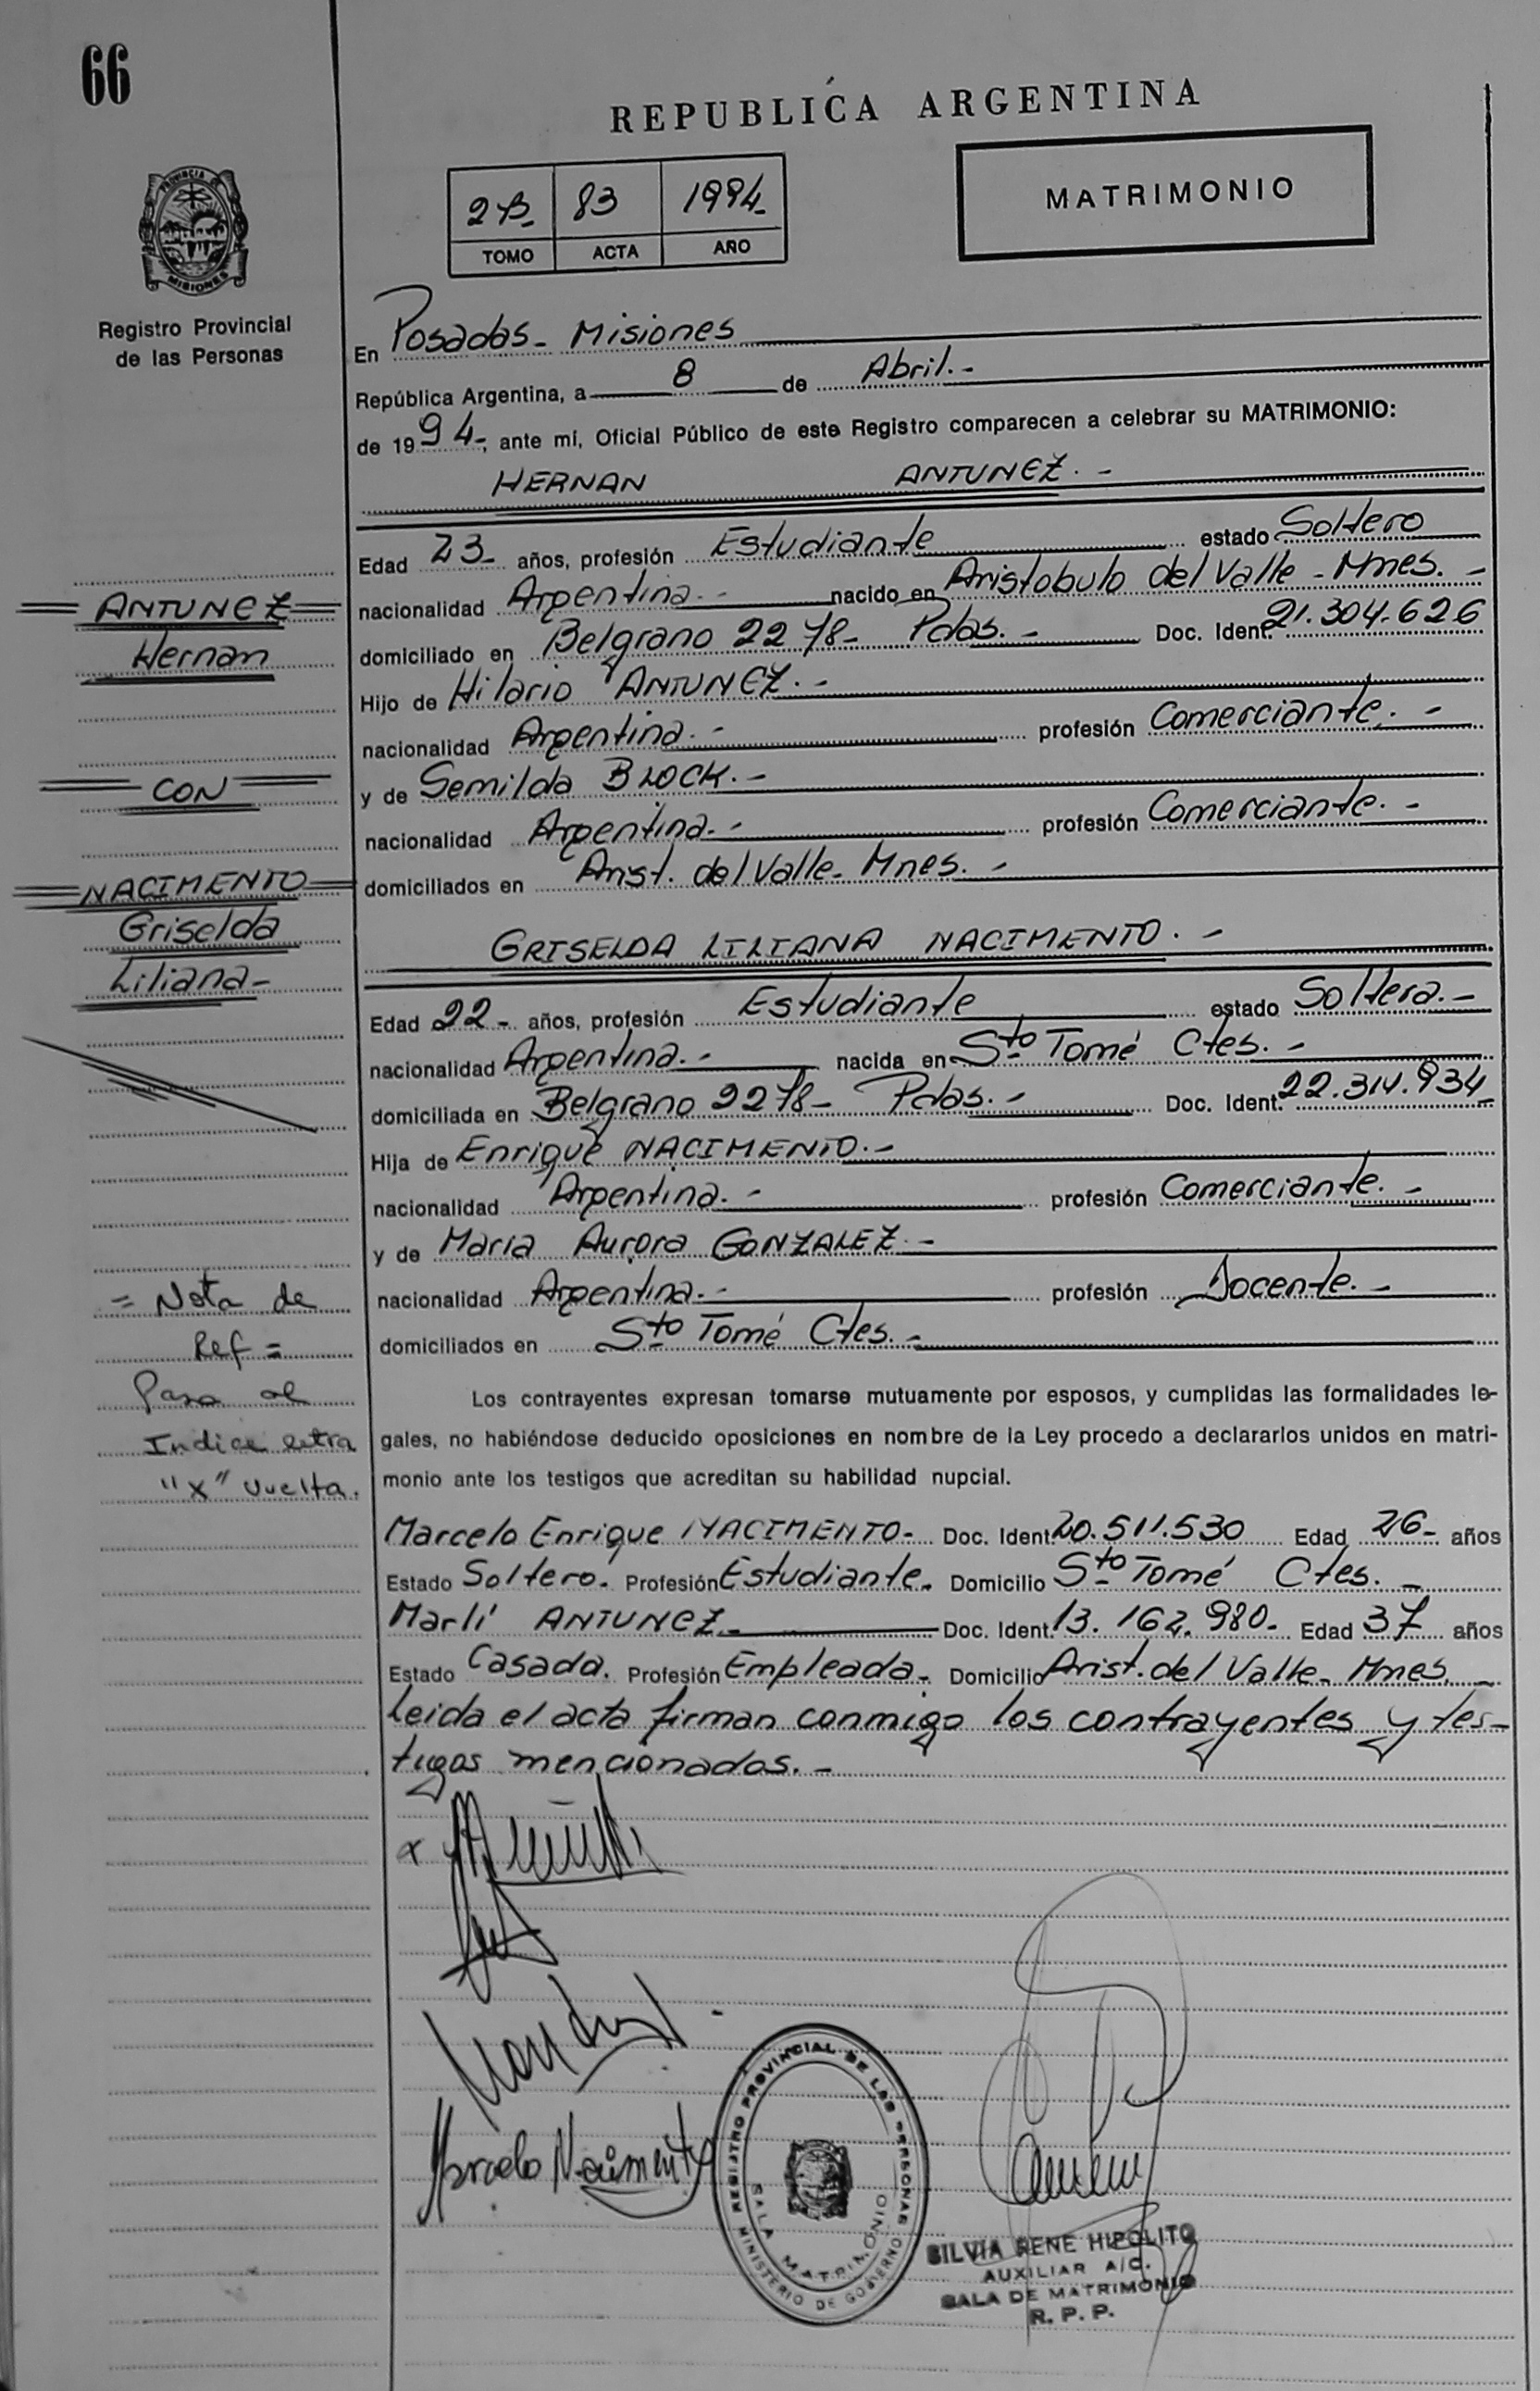 66
REPUBLICA ARGENTINA
2B- 83 1994-
TOMO ACTA AÑO
MATRIMONIO
PROVINCIA DE
MISIONES
Registro Provincial
de las Personas
En Posadas- Misiones
República Argentina, a 8 de Abril.-
de 1994-, ante mí, Oficial Público de este Registro comparecen a celebrar su MATRIMONIO:
HERNAN ANTUNEZ.-
Edad 23- años, profesión Estudiante estado Soltero
nacionalidad Argentina.- nacido en Aristobulo del Valle - Mnes.-
domiciliado en Belgrano 2278- Pdas.- Doc. Ident. 21.304.626
Hijo de Hilario ANTUNEZ.-
nacionalidad Argentina.- profesión Comerciante.-
y de Semilda BLOCK.-
nacionalidad Argentina.- profesión Comerciante.-
domiciliados en Arist. del Valle- Mnes.-
GRISELDA LILIANA NACIMENTO.-
Edad 22- años, profesión Estudiante estado Soltera.-
nacionalidad Argentina.- nacida en Sto Tomé Ctes.-
domiciliada en Belgrano 2278- Pdas.- Doc. Ident. 22.314.934
Hija de Enrique NACIMENTO.-
nacionalidad Argentina.- profesión Comerciante.-
y de Maria Aurora GONZALEZ.-
nacionalidad Argentina.- profesión Docente.-
domiciliados en Sto Tomé Ctes.-
Los contrayentes expresan tomarse mutuamente por esposos, y cumplidas las formalidades le-
gales, no habiéndose deducido oposiciones en nombre de la Ley procedo a declararlos unidos en matri-
monio ante los testigos que acreditan su habilidad nupcial.
Marcelo Enrique NACIMENTO- Doc. Ident. 20.511.530 Edad 26- años
Estado Soltero. Profesión Estudiante. Domicilio Sto Tomé Ctes.-
Marlí ANTUNEZ- Doc. Ident. 13.162.980- Edad 37 años
Estado Casada. Profesión Empleada- Domicilio Arist. del Valle- Mnes.-
Leida el acta firman conmigo los contrayentes y tes-
tigos mencionados.-
ANTUNEZ
Hernan
CON
NACIMENTO
Griselda
Liliana-
= Nota de
Ref =
Pasa al
Indice letra
"X" vuelta.
x
Marcelo Nacimento
REGISTRO PROVINCIAL DE LAS PERSONAS
SALA MATRIMONIO
MINISTERIO DE GOBIERNO
SILVIA RENE HIPOLITO
AUXILIAR A/C.
SALA DE MATRIMONIO
R. P. P.